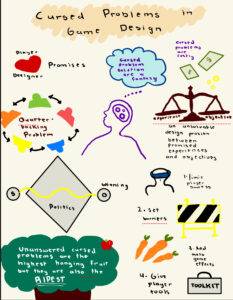 Cursed Problems in
Game Design
Player
Designer
Promises
Cursed problem
solution are a
fantasy
Cursed
problems
are costly
Quarter-
backing
Problem
experience
objective
an unsolvable
design problem
between
promised
experiences
and objectives
Winning
Politics
1. limit
player
2. set
barriers
3. Add
game
effects
4. Give
player
tools
TOOLKIT
Unanswered cursed
problems are the
highest hanging fruit
but they are also the
RIPEST